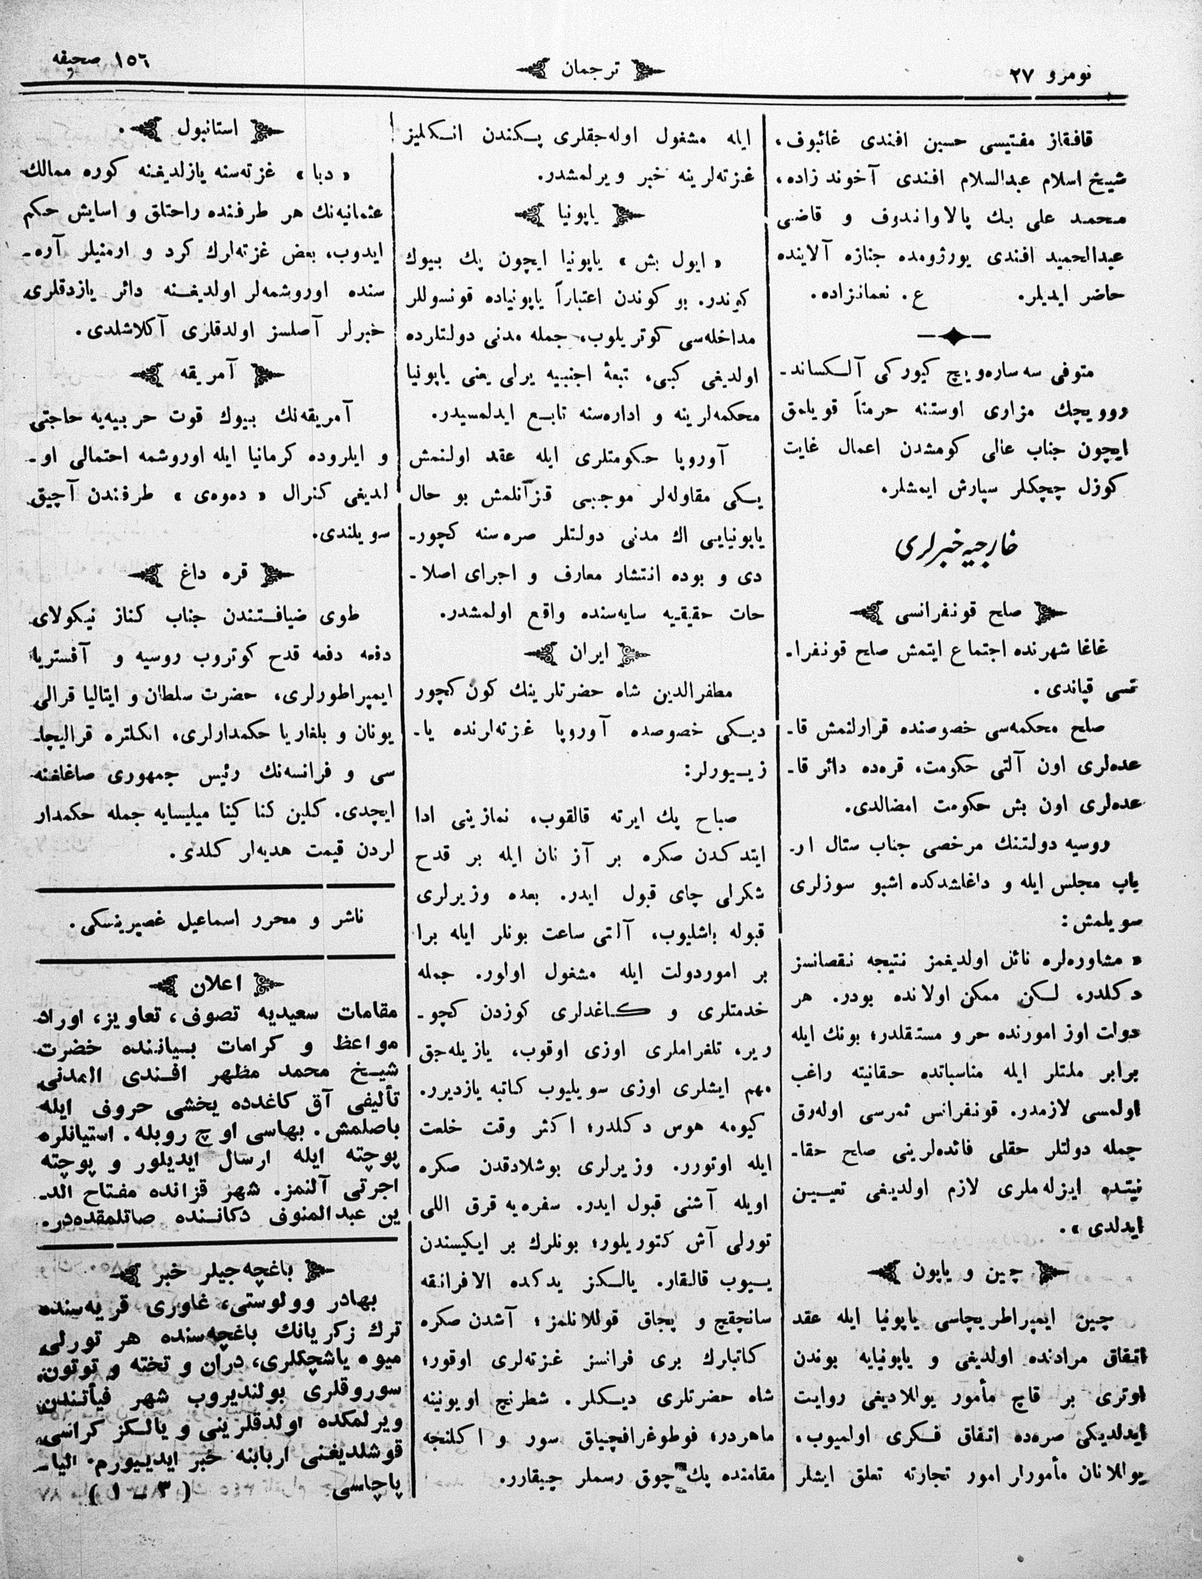 نومرو ٢٧
ترجمان
١٥٦ صحیفه
قافقاز مفتیسی حسین افندی غائبوف،
شیخ اسلام عبدالسلام افندی آخوند زاده،
محمد علی بك پالاواندوف و قاضی
عبدالحمید افندی یورژومده جنازه آلاینده
حاضر ایدیلر. ع. نعمانزاده.
متوفی سه ساره‌ویچ كیوركی آلكساند-
روویچك مزاری اوستنه حرمتاً قویلمق
ایچون جناب عالی كومشدن اعمال غایت
كوزل چچكلر سپارش ایمشلر.
خارجیه خبرلری
صلح قونفرانسی
غاغا شهرنده اجتماع ایتمش صلح قونفرا-
نسی قپاندی.
صلح محكمه‌سی خصوصنده قرارلنمش قا-
عده‌لری اون آلتی حكومت، قره‌ده دائر قا-
عده‌لری اون بش حكومت امضالدی.
روسیه دولتنك مرخصی جناب ستال ار-
یاب مجلس ایله و داغلشدكده اشبو سوزلری
سویلمش:
« مشاوره‌لره نائل اولدیغمز نتیجه نقصانسز
دكلدر، لكن ممكن اولانده بودر. هر
دولت اوز امورنده حر و مستقلدر؛ بونك ایله
برابر ملتلر ایله مناسباتده حقانیته راغب
اولمسی لازمدر. قونفرانس ثمرسی اوله‌رق
جمله دولتلر حقلی فائده‌لرینی صلح حقا-
نیتده ایزله‌ملری لازم اولدیغی تعیین
ایدلدی ».
چین و یاپون
چین ایمپراطریچاسی یاپونیا ایله عقد
اتفاق مرادنده اولدیغی و یاپونیایه بوندن
اوتری بر قاچ مأمور یوللادیغی روایت
ایدلدیكی صره‌ده اتفاق فكری اولمیوب،
یوللانان مأمورلر امور تجارته تعلق ایشلر
ایله مشغول اوله‌جقلری پكندن انكلیز
غزته‌لرینه خبر ویرلمشدر.
یاپونیا
« ایول بش » یاپونیا ایچون پك بیوك
كیوندر. بو كوندن اعتباراً یاپونیاده قونسوللر
مداخله‌سی كوتریلوب، جمله مدنی دولتلرده
اولدیغی كبی، تبعهٔ اجنبیه یرلی یعنی یاپونیا
محكمه‌لرینه و اداره‌سنه تابع ایدلمسیدر.
آوروپا حكومتلری ایله عقد اولنمش
یكی مقاوله‌لر موجبی قزآنلمش بو حال
یاپونیایی اك مدنی دولتلر صره‌سنه كچور-
دی و بوده انتشار معارف و اجرای اصلا-
حات حقیقیه سایه‌سنده واقع اولمشدر.
ایران
مظفرالدین شاه حضرتلرینك كون كچور
دیكی خصوصده آوروپا غزته‌لرنده یا-
زییورلر:
صباح پك ایرته قالقوب، نمازینی ادا
ایتدكدن صكره بر آز نان ایله بر قدح
شكرلی چای قبول ایدر. بعده وزیرلری
قبوله باشلیوب، آلتی ساعت بونلر ایله برا
بر اموردولت ایله مشغول اولور. جمله
خدمتلری و كاغدلری كوزدن كچو-
ریر، تلغراملری اوزی اوقوب، یازیله‌جق
مهم ایشلری اوزی سویلیوب كاتبه یازدیرر.
كیومه هوس دكلدر؛ اكثر وقت خلعت
ایله اوتورر. وزیرلری بوشلادقدن صكره
اویله آشنی قبول ایدر. سفره‌یه قرق اللی
تورلی آش كتوریلور؛ بونلرك بر ایكیسندن
ییوب قالقار. یالكز یدكده الافرانقه
سانچقچ و پچاق قوللانلمز؛ آشدن صكره
كاتبارك بری فرانسز غزته‌لری اوقور؛
شاه حضرتلری دیكلر. شطرنج اویونینه
ماهردر؛ فوطوغرافچیاق سور و اكلنجه
مقامنده پك چوق رسملر چیقارر.
استانبول
« دبا » غزته‌سنه یازلدیغنه كوره ممالك
عثمانیه‌نك هر طرفنده راحتلق و اسایش حكم
ایدوب، بعض غزته‌لرك كرد و ارمنیلر آره-
سنده اوروشمه‌لر اولدیغنه دائر یازدقلری
خبرلر آصلسز اولدقلری آكلاشلدی.
آمریقه
آمریقه‌نك بیوك قوت حربیه‌یه حاجتی
و ایلروده كرمانیا ایله اوروشمه احتمالی او-
لدیغی كنرال « ده‌وه‌ی » طرفندن آچیق
سویلندی.
قره داغ
طوی ضیافتندن جناب كناز نیكولای
دفعه دفعه قدح كوتروب روسیه و آفستریا
ایمپراطورلری، حضرت سلطان و ایتالیا قرالی
یونان و بلغاریا حكمدارلری، انكلتره قرالیچا-
سی و فرانسه‌نك رئیس جمهوری صاغلغنه
ایچدی. كلین كنا كینا میلیسایه جمله حكمدار
لردن قیمت هدیه‌لر كلدی.
ناشر و محرر اسماعیل غصپرینسكی.
اعلان
مقامات سعیدیه تصوف، تعاویز، اوراد
مواعظ و كرامات بیاننده حضرت
شیخ محمد مظهر افندی المدنی
تألیفی آق كاغدده یخشی حروف ایله
باصلمش. بهاسی اوچ روبله. استیانلره
پوچته ایله ارسال ایدیلور و پوچته
اجرتی آلنمز. شهر قزانده مفتاح الد-
ین عبدالمنوف دكاننده صاتلمقده‌در.
باغچه‌جیلر خبر
بهادر وولوستی، غاوری قریه‌سنده
ترك زكریانك باغچه‌سنده هر تورلی
میوه یاشچكلری، دران و تخته و توتون
سوروقلری بولندیروب شهر فیأتندن
ویرلمكده اولدقلرینی و یالكز كراسی
قوشلدیغنی اربابنه خبر ایدییورم. الیا-
پاچاسی (٣ــ١)